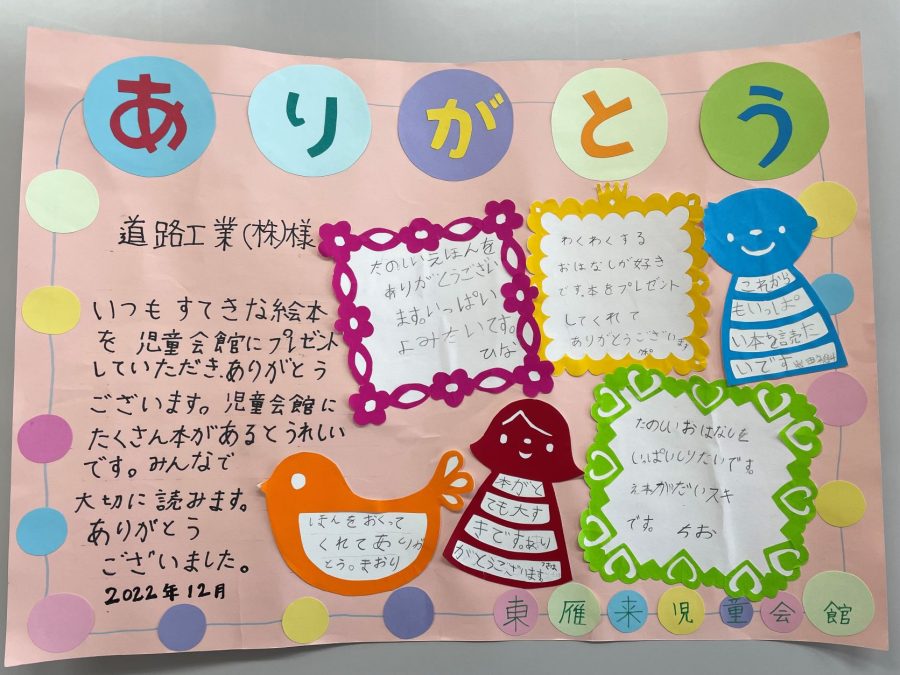 ありがとう
道路工業(株)様
いつも すてきな絵本
を 児童会館にプレゼント
していただき、ありがとう
ございます。児童会館に
たくさん本があるとうれしい
です。みんなで
大切に読みます。
ありがとう
ございました。
2022年12月
たのしいえほんを
ありがとうござい
ます。いっぱい
よみたいです。
ひな
わくわくする
おはなしが好き
です。本をプレゼント
してくれて
ありがとうございます
これから
もいっぱ
い本を読た
いです
ほんをおくって
くれてありが
とう。まおり
本がと
ても大す
きです。あり
がとうございます
たのしいおはなしを
いっぱいしりたいです。
えほんがだいスキ
です。 ちお
東雁来児童会館